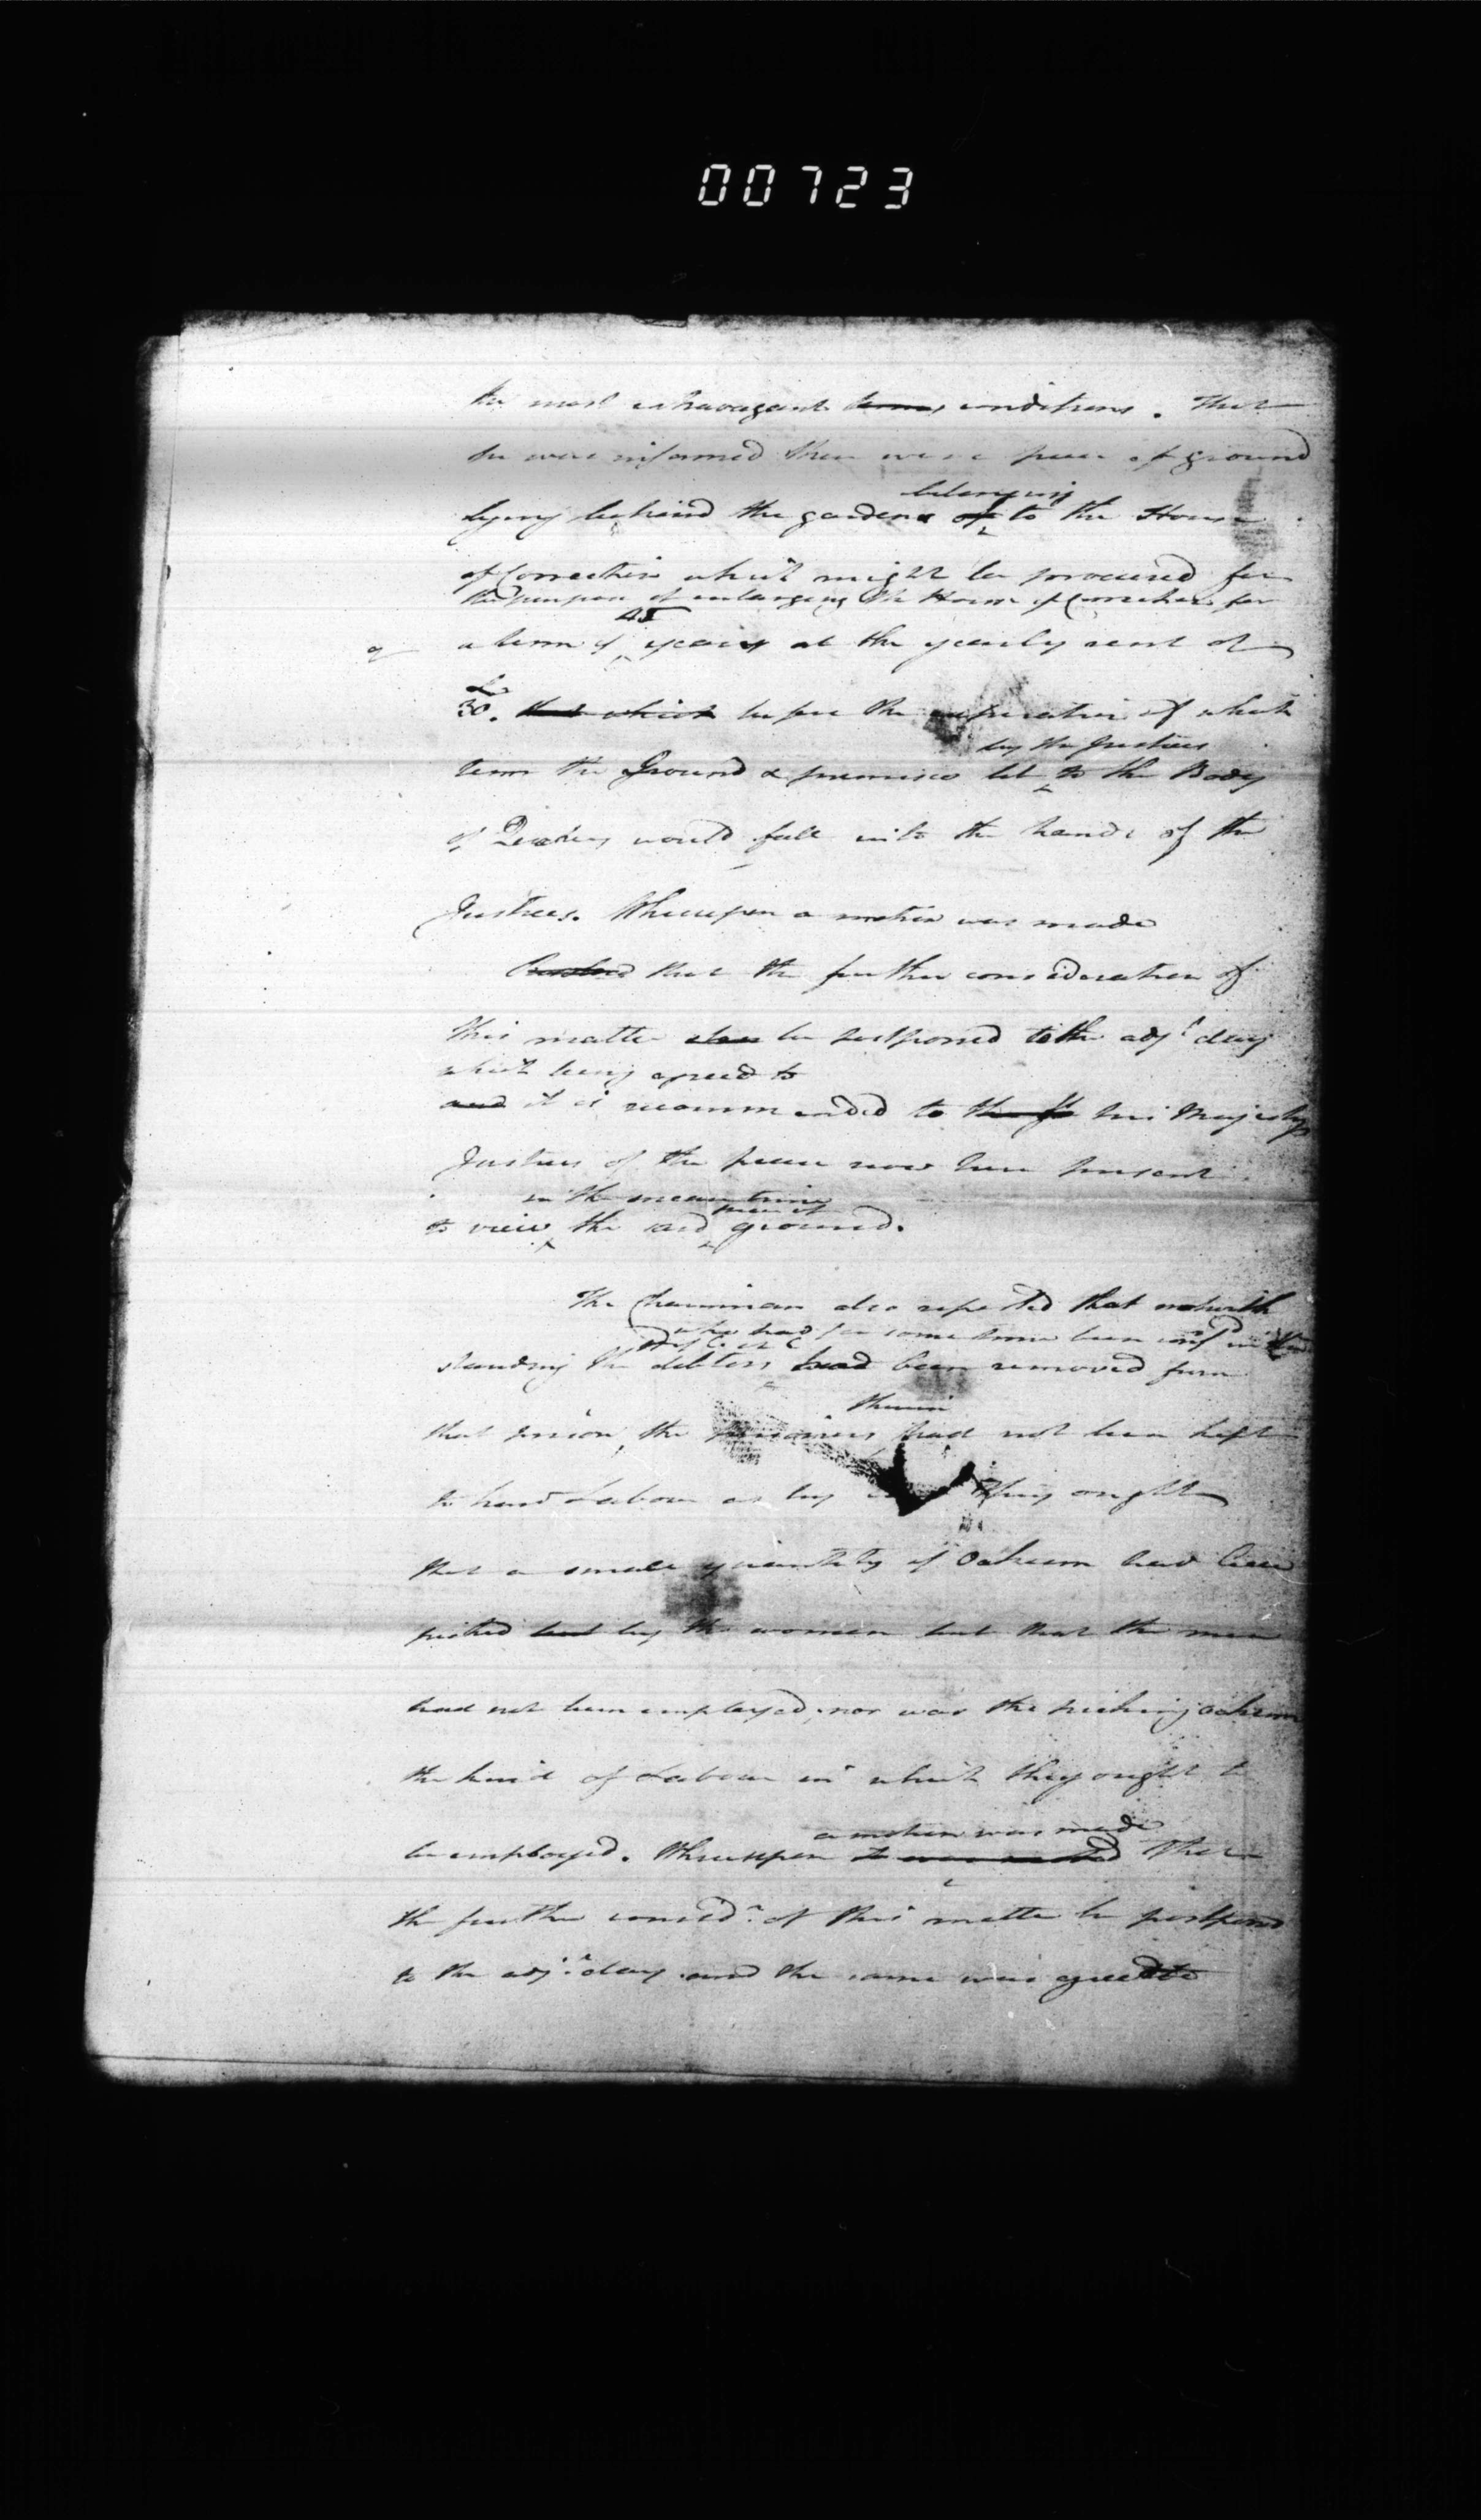 00723
the most extravagant terms conditions. That
he was informed there was a piece of ground
belonging
lying behind the gardens of to the House
of Correction which might be procured for
the purpose of enlarging the House of Correction for
45
a term of years at the yearly rent of
£
30. that which before the expiration of which
by the Justices
term the Ground & premises let to the Body
of Quakers would fall into the hands of the
Justices. Whereupon a motion was made
Resolved that the further consideration of
this matter be postponed to the adjt. day
which being agreed to
and it is recommended to the his Majestys
Justices of the peace now here present
in the mean time
piece of
to view the said ground.
The Chairman also reported that notwith
who had for some time been conf'd in the
standing the debtors had been removed from
therein
that prison, the prisoners had not been kept
to hard Labour as by they ought
that a small quantity of Oakum had been
picked but by the women but that the men
had not been employed, nor was the picking oakum
the kind of Labour in which they ought to
a motion was made
be employed. Whereupon it was moved That
the further consid.n of this matter be postponed
to the adj.t day and the same was agreed to